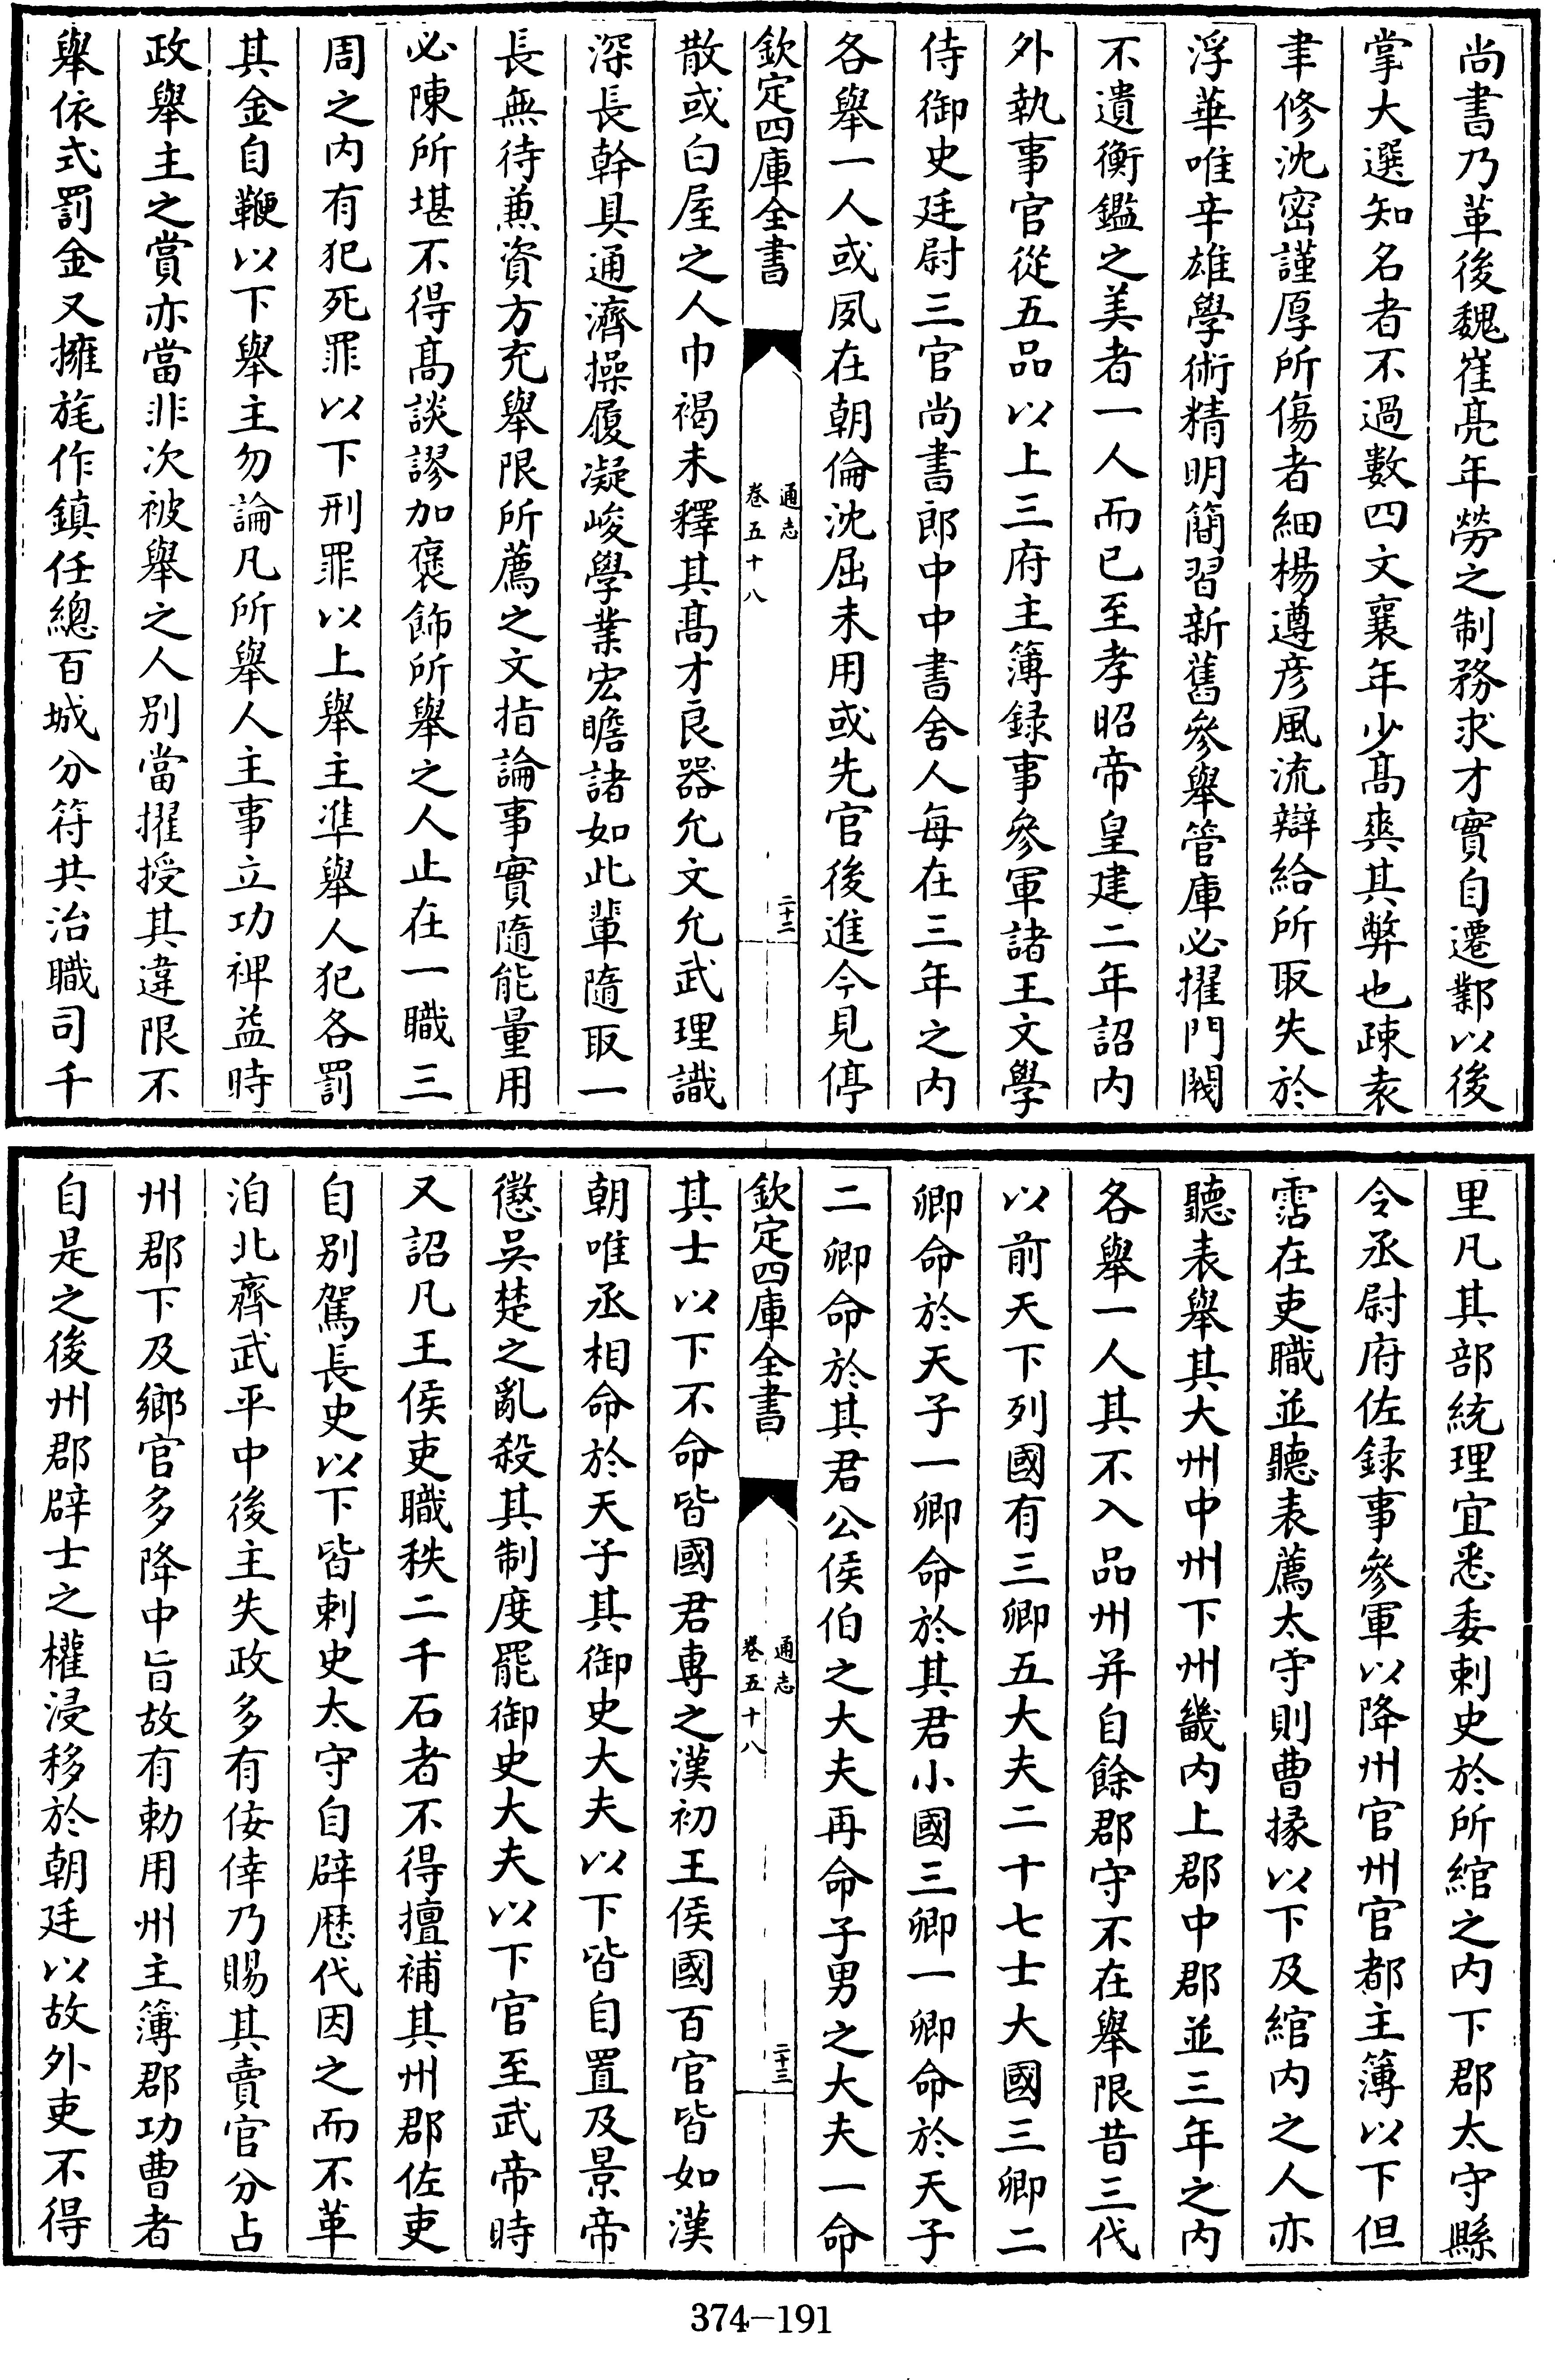 尚書乃革後魏崔亮年勞之制務求才實自遷鄴以後
掌大選知名者不過數四文襄年少髙爽其弊也疎袁
聿修沈密謹厚所傷者細楊遵彦風流辯給所取失於
浮華唯辛雄學術精明簡習新舊參舉管庫必擢門閥
不遺衡鑑之美者一人而已至孝昭帝皇建二年詔内
外執事官從五品以上三府主簿録事參軍諸王文學
侍御史廷尉三官尚書郎中中書舍人每在三年之内
各舉一人或夙在朝倫沈屈未用或先官後進今見停
欽定四庫全書
通志
卷五十八
二十二
散或白屋之人巾褐未釋其髙才良器允文允武理識
深長幹具通濟操履凝峻學業宏贍諸如此輩隨取一
長無待兼資方充舉限所薦之文指論事實隨能量用
必陳所堪不得髙談謬加褒飾所舉之人止在一職三
周之内有犯死罪以下刑罪以上舉主準舉人犯各罰
其金自鞭以下舉主勿論凡所舉人主事立功裨益時
政舉主之賞亦當非次被舉之人别當擢授其違限不
舉依式罰金又擁旄作鎮任總百城分符共治職司千
里凡其部統理宜悉委刺史於所綰之内下郡太守縣
令丞尉府佐録事參軍以降州官州官都主簿以下但
霑在吏職並聽表薦太守則曹掾以下及綰内之人亦
聽表舉其大州中州下州畿内上郡中郡並三年之内
各舉一人其不入品州并自餘郡守不在舉限昔三代
以前天下列國有三卿五大夫二十七士大國三卿二
卿命於天子一卿命於其君小國三卿一卿命於天子
二卿命於其君公侯伯之大夫再命子男之大夫一命
欽定四庫全書
通志
卷五十八
二十三
其士以下不命皆國君專之漢初王侯國百官皆如漢
朝唯丞相命於天子其御史大夫以下皆自置及景帝
懲吳楚之亂殺其制度罷御史大夫以下官至武帝時
又詔凡王侯吏職秩二千石者不得擅補其州郡佐吏
自别駕長史以下皆刺史太守自辟歴代因之而不革
洎北齊武平中後主失政多有佞倖乃賜其賣官分占
州郡下及鄉官多降中旨故有勅用州主簿郡功曹者
自是之後州郡辟士之權浸移於朝廷以故外吏不得
374-191